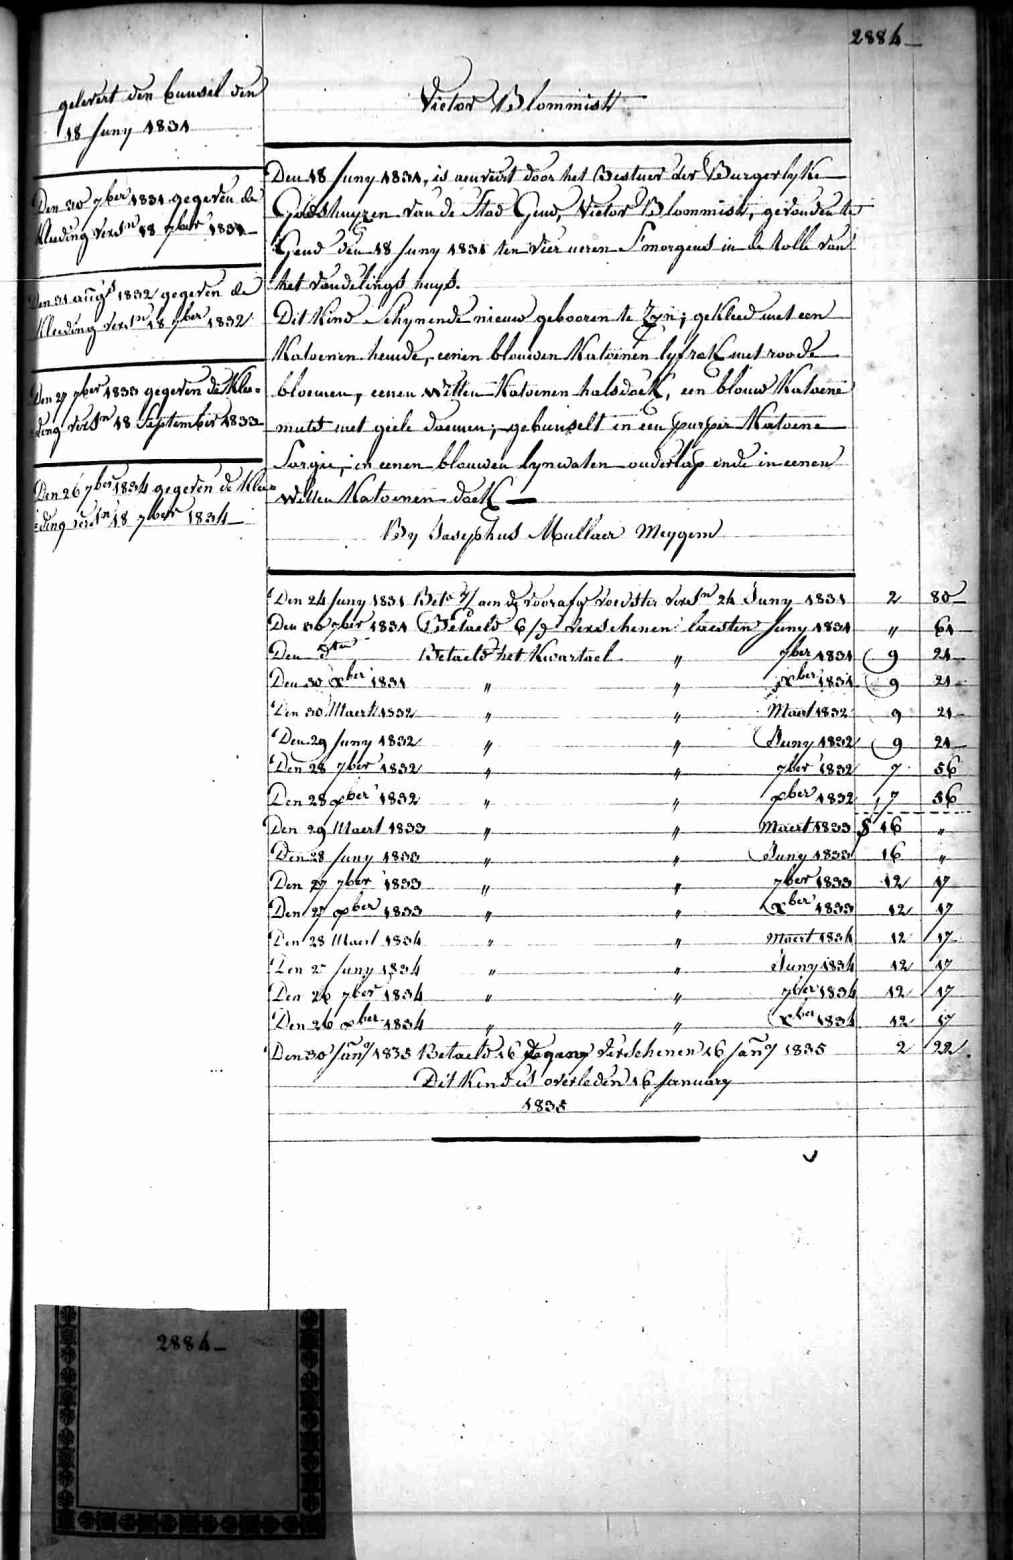 2884
gelevert den bunsel den
18 Juny 1831
Den 30 7ber 1831 gegeven de
kleeding versn 18 7ber 1831
Den 31 augs 1832 gegeven de
kleeding versn 18 7ber 1832
Den 27 7ber 1833 gegeven de klee-
ding versn 18 September 1833
Den 26 7ber 1834 gegeven de klee-
ding versn 18 7ber 1834
Victor Blommist
Den 18 Juny 1831, is aenveirt door het Bestuer der Burgerlyke
Godshuyzen van de Stad Gend, Victor Blommist, gevonden te
Gend den 18 Juny 1831 ten vier ueren S'morgens in de rolle van
het vondelings huys.
Dit Kind schynende nieuw gebooren te zyn; gekleed met een
Katoenen hemde, eenen blouwen Katoenen lyfrok met roode
bloemen, eenen witten Katoenen halsdoek, een blouw Katoene
muts met geele bloemen; gebunselt in een purper Katoene
Sargie, in eenen blouwen lynwaten onderlap ende in eenen
witten Katoenen doek
By Josephus Mullaer Meygem
Den 24 Juny 1831 Bet. aen de voorafg voedster versn 24 Juny 1831 2 80
Den 30 7ber 1831 Betaeld 6/9 verschenen laesten Juny 1831 " 61
Den dto Betaeld het Kwartael " 7ber 1831 9 21
Den 30 Xber 1831 " " Xber 1831 9 21
Den 30 Maert 1832 " " Maert 1832 9 21
Den 29 Juny 1832 " " Juny 1832 9 21
Den 28 7ber 1832 " " 7ber 1832 7 56
Den 28 Xber 1832 " " Xber 1832 7 56
Den 29 Maert 1833 " " Maert 1833 16 "
Den 28 Juny 1833 " " Juny 1833 16 "
Den 27 7ber 1833 " " 7ber 1833 12 17
Den 27 Xber 1833 " " Xber 1833 12 17
Den 28 Maert 1834 " " Maert 1834 12 17
Den 27 Juny 1834 " " Juny 1834 12 17
Den 26 7ber 1834 " " 7ber 1834 12 17
Den 26 Xber 1834 " " Xber 1834 12 17
Den 30 Jany 1835 Betaeld 16 dagen verschenen 16 Jany 1835 2 22
Dit Kind is overleden 16 January
1835
2884